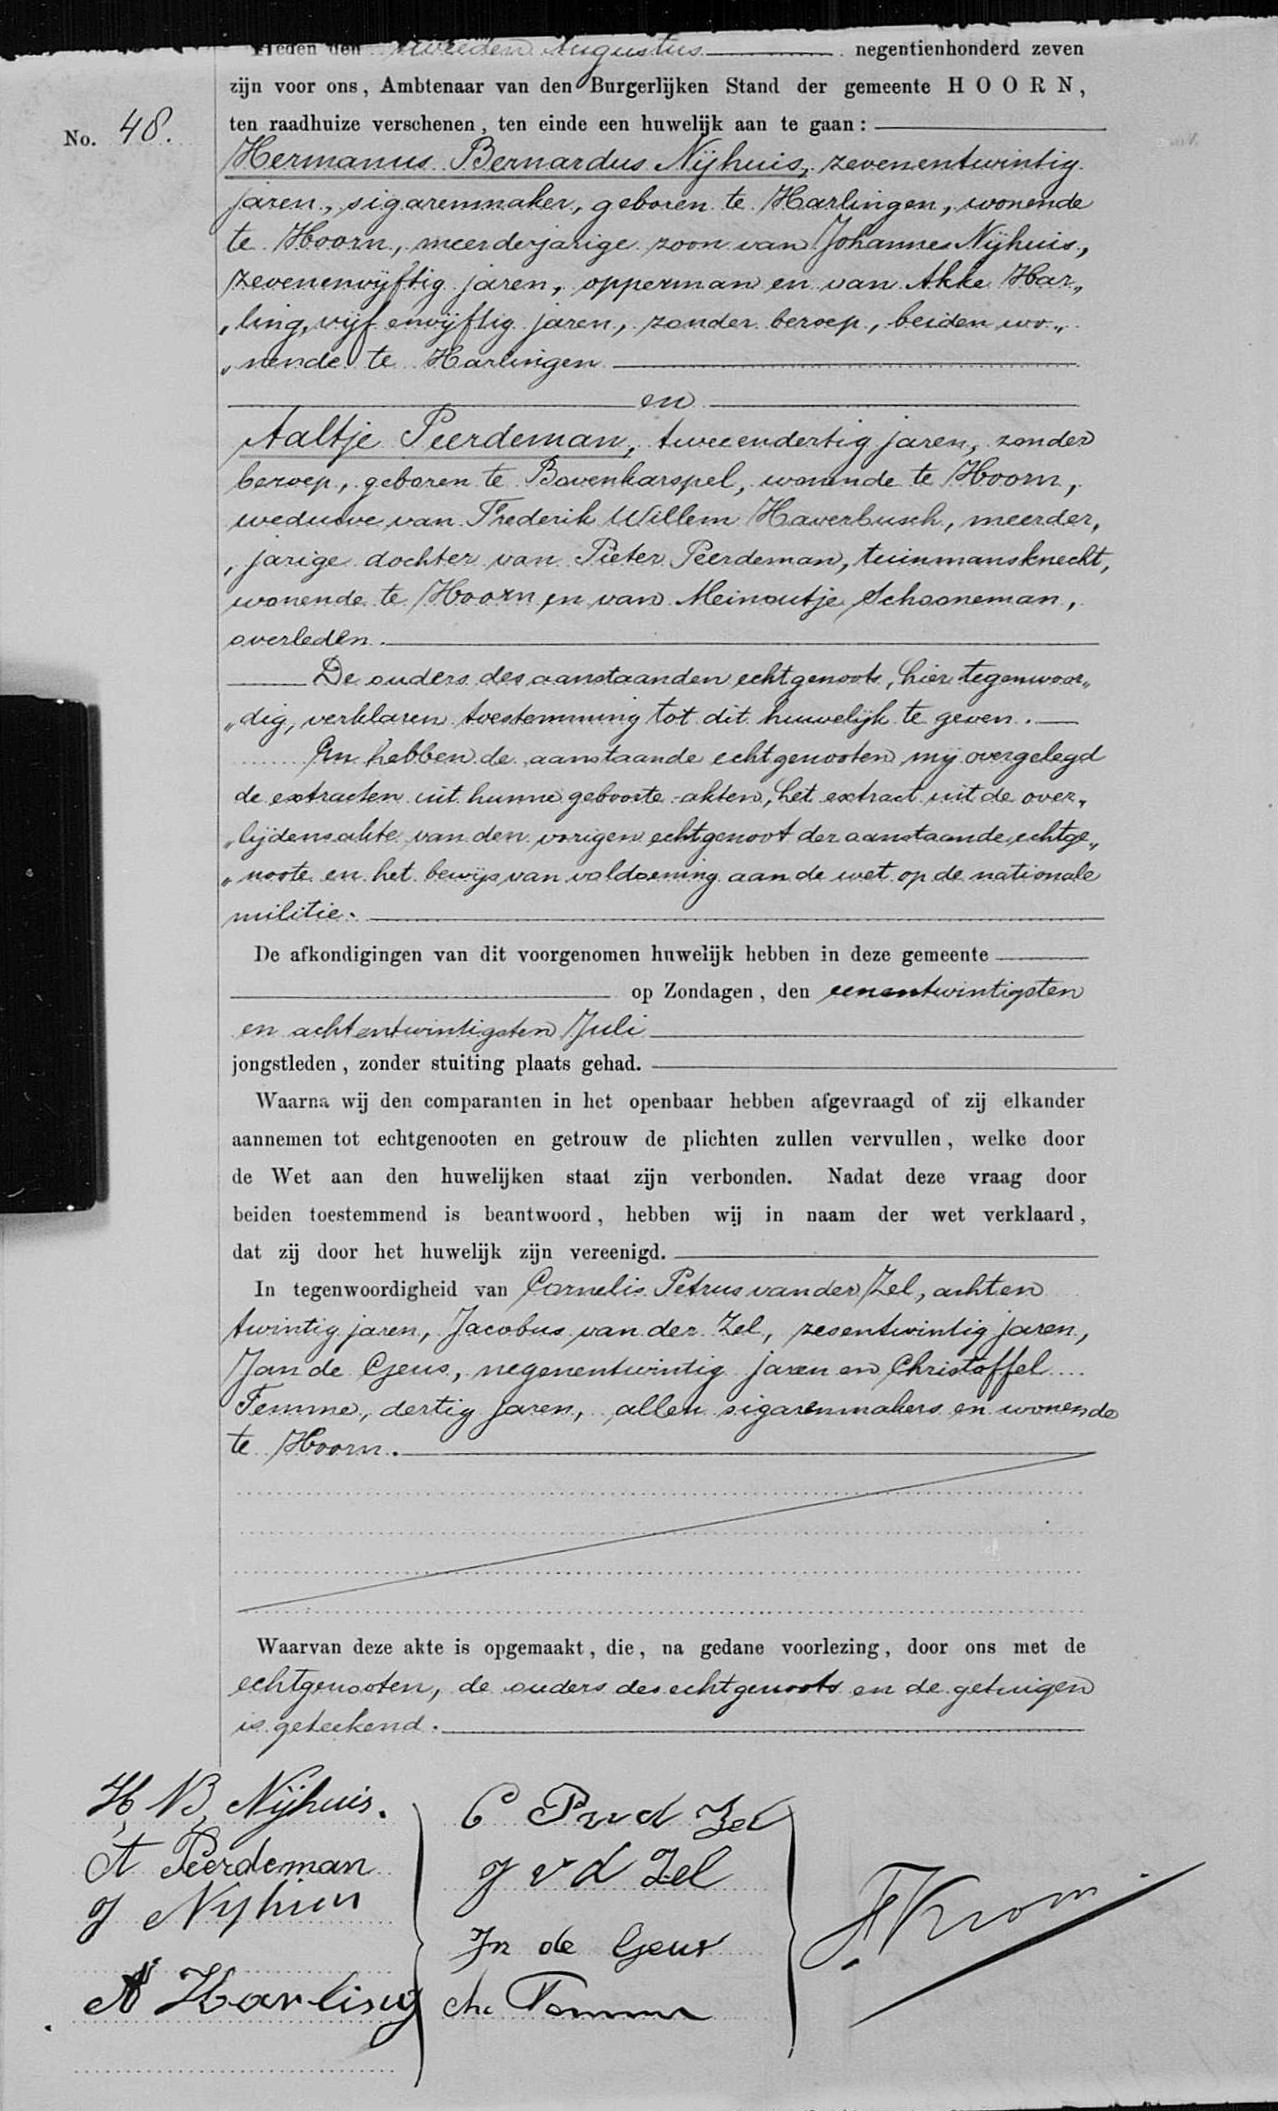 Heden den tweeden Augustus negentienhonderd zeven
zijn voor ons, Ambtenaar van den Burgerlijken Stand der gemeente HOORN,
No. 48.
ten raadhuize verschenen, ten einde een huwelijk aan te gaan:
Hermanus Bernardus Nijhuis, zevenentwintig
jaren, sigarenmaker, geboren te Harlingen, wonende
te Hoorn, meerderjarige zoon van Johannes Nijhuis,
zevenenvijftig jaren, opperman en van Akke Har„
„ling, vijf envijftig jaren, zonder beroep, beiden wo„
„nende te Harlingen
en
Aaltje Peerdeman, tweeendertig jaren, zonder
beroep, geboren te Bovenkarspel, wonende te Hoorn,
weduwe van Frederik Willem Haverbusch, meerder„
„jarige dochter van Pieter Peerdeman, tuinmansknecht,
wonende te Hoorn en van Meinoutje Schooneman,
overleden.
De ouders des aanstaanden echtgenoots, hier tegenwoor„
„dig, verklaren toestemming tot dit huwelijk te geven.
En hebben de aanstaande echtgenooten mij overgelegd
de extracten uit hunne geboorte-akten, het extract uit de over„
„lijdensakte van den vorigen echtgenoot der aanstaande echtge„
„noote en het bewijs van voldoening aan de wet op de nationale
militie.
De afkondigingen van dit voorgenomen huwelijk hebben in deze gemeente
op Zondagen, den eenentwintigsten
en achtentwintigsten Juli
jongstleden, zonder stuiting plaats gehad.
Waarna wij den comparanten in het openbaar hebben afgevraagd of zij elkander
aannemen tot echtgenooten en getrouw de plichten zullen vervullen, welke door
de Wet aan den huwelijken staat zijn verbonden. Nadat deze vraag door
beiden toestemmend is beantwoord, hebben wij in naam der wet verklaard,
dat zij door het huwelijk zijn vereenigd.
In tegenwoordigheid van Cornelis Petrus van der Zel, achten
twintig jaren, Jacobus van der Zel, zesentwintig jaren,
Jan de Geus, negenentwintig jaren en Christoffel
Temme, dertig jaren, allen sigarenmakers en wonende
te Hoorn.
Waarvan deze akte is opgemaakt, die, na gedane voorlezing, door ons met de
echtgenooten, de ouders des echtgenoots en de getuigen
is geteekend.
H, B, Nijhuis.
A Peerdeman
J Nijhuis
A Harling
C P v d Zel
J v d Zel
Jn de Geus
Ch. Temme
F. Kroon